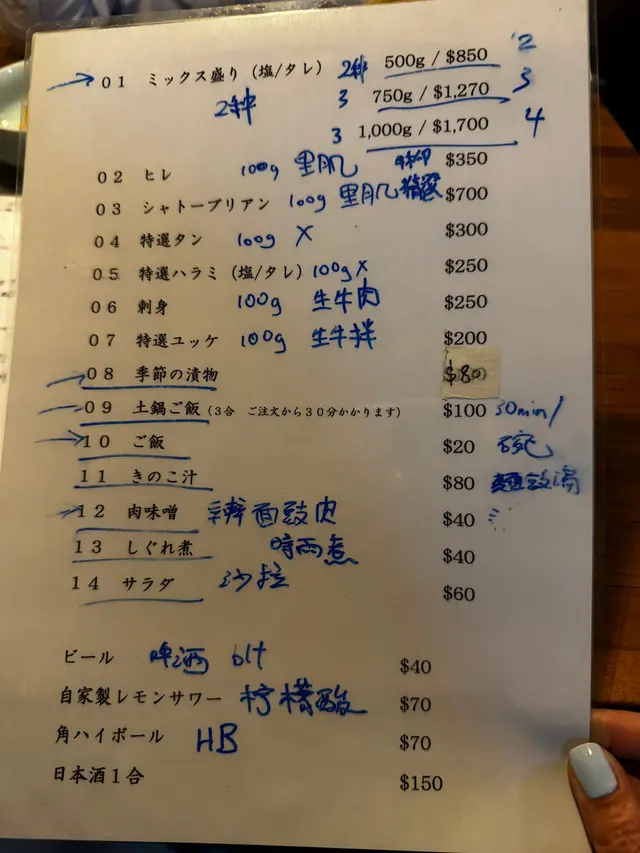 01 ミックス盛り（塩/タレ） 2种 500g / $850 2
2种 3 750g / $1,270 3
3 1,000g / $1,700 4
02 ヒレ 100g 里肌 $350
03 シャトーブリアン 100g 里肌 $700
04 特選タン 100g X $300
05 特選ハラミ（塩/タレ） 100g X $250
06 刺身 100g 生牛肉 $250
07 特選ユッケ 100g 生牛拌 $200
08 季節の漬物 $80
09 土鍋ご飯（3合 ご注文から30分かかります） $100 30min/
10 ご飯 $20 碗
11 きのこ汁 $80
12 肉味噌 $40
13 しぐれ煮 時雨煮 $40
14 サラダ 沙拉 $60
ビール 啤酒 $40
自家製レモンサワー 柠檬酸 $70
角ハイボール HB $70
日本酒1合 $150